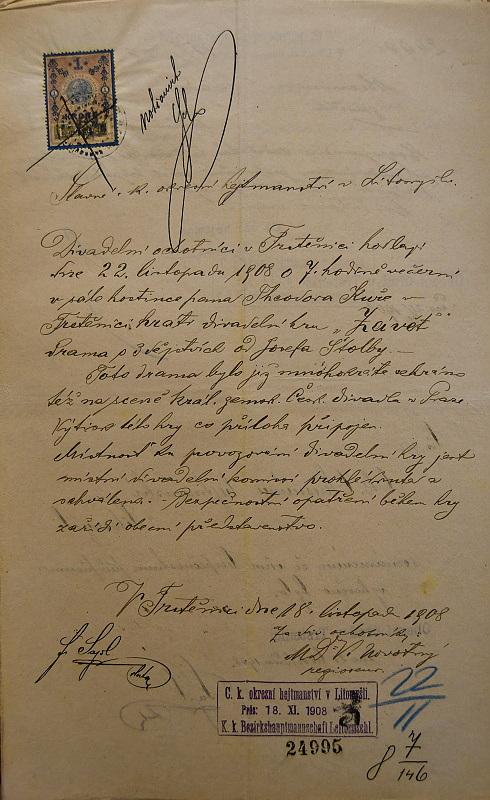 1
Slavné k. okresní hejtmanství v Litomyšli.
Divadelní ochotníci v Trstěnici hodlají
dne 22. listopadu 1908 o 7. hodině večerní
v sále hostince pana Theodora Kuře v
Trstěnici hrati divadelní hru „Závěť"
drama o 3 dějstvích od Josefa Štolby. —
Toto drama bylo již mnohokráte sehráno
též na scéně král. zemsk. Česk. divadla v Praze.
Výtisk této hry co příloha připojen.
Místnosť ku provozování divadelní hry jest
místní divadelní komisí prohlédnuta a
schválena. Bezpečnostní opatření během hry
zařídí obecní představenstvo.
V Trstěnici dne 18. listopadu 1908
Za div. ochotníky:
V. Novotný
regisseur.
C. k. okresní hejtmanství v Litomyšli.
Präs: 18. XI. 1908
K. k. Bezirkshauptmannschaft Leitomischl.
24995
22
11
8 7
146